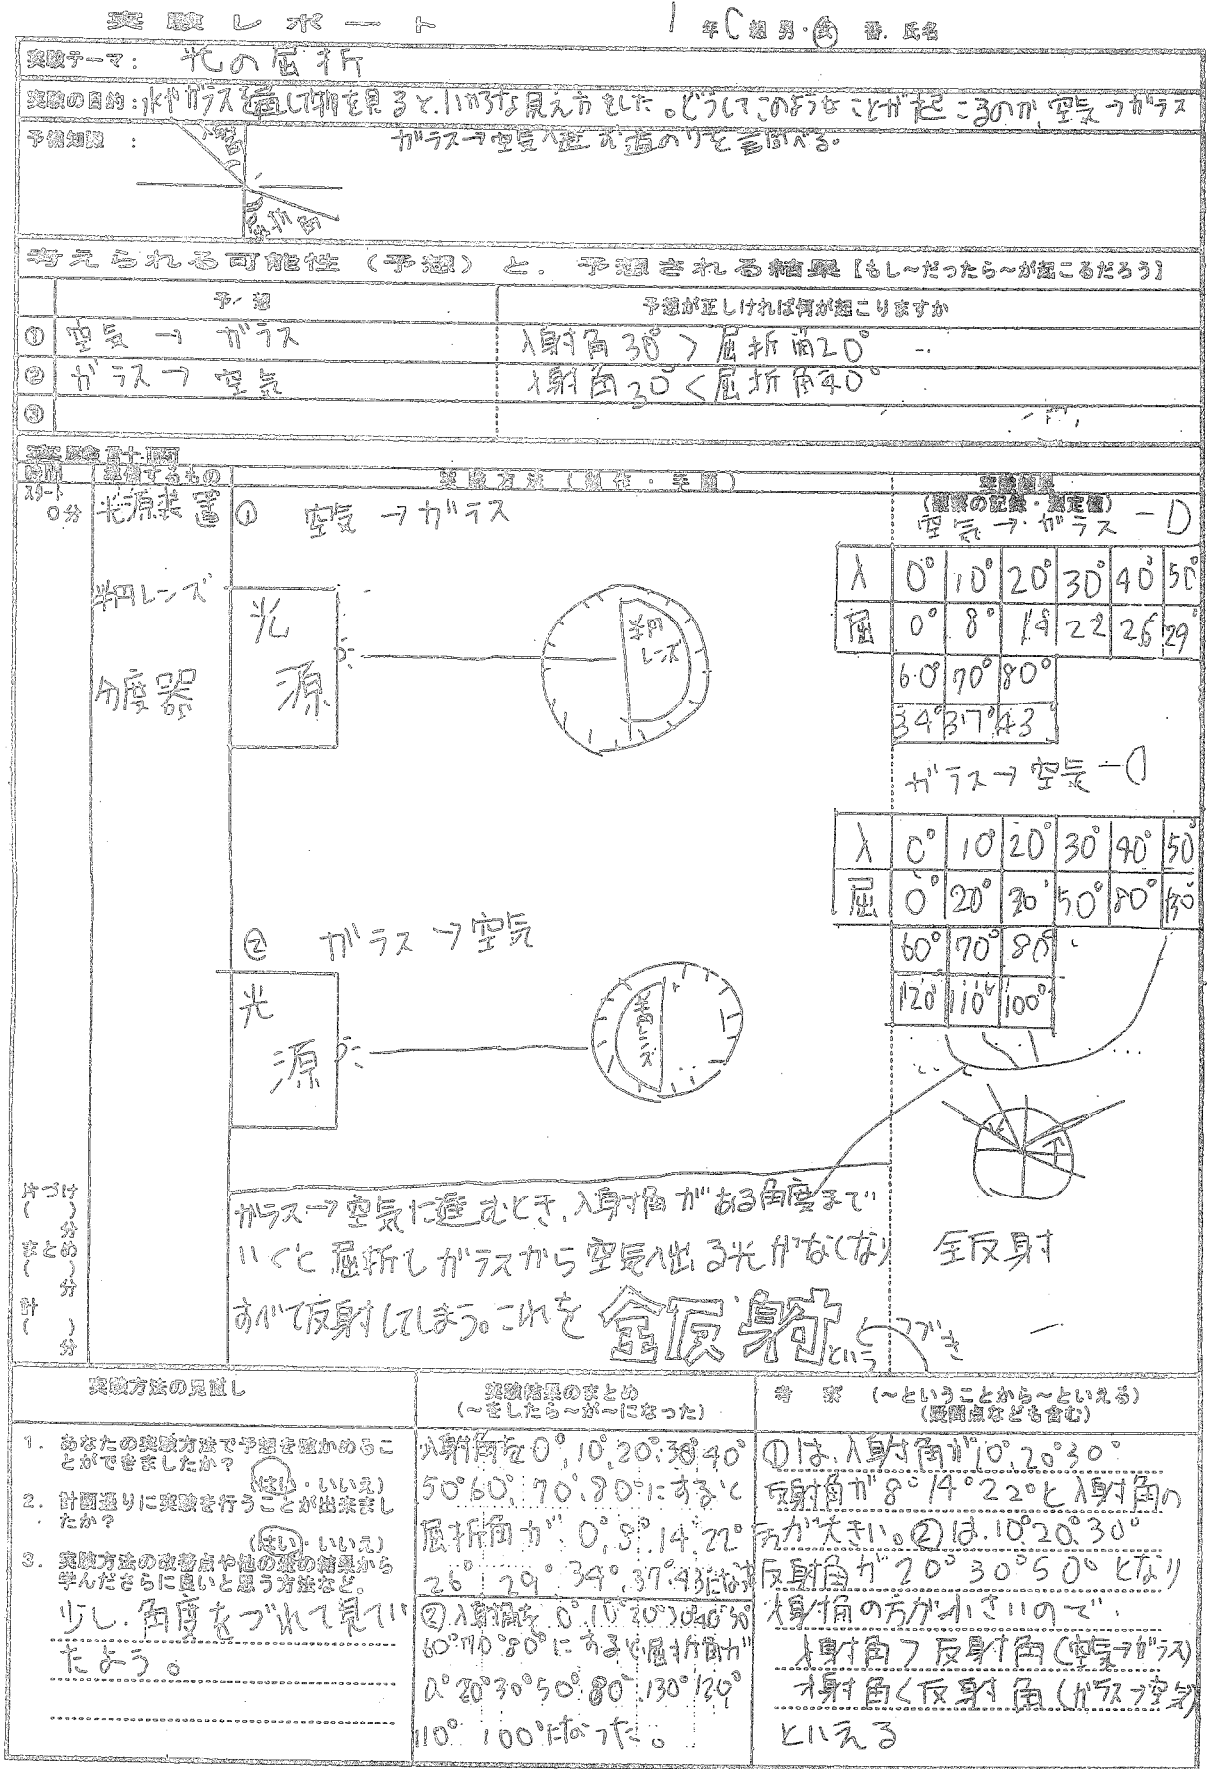 実験レポート 1年C組 男・女 番. 氏名
実験テーマ: 光の屈折
実験の目的: 水やガラスを通して物を見ると、いろいろな見え方をした。どうしてこのようなことが起こるのか、空気→ガラス
ガラス→空気へ進む道のりを調べる。
予備知識 :
入射角
屈折角
考えられる可能性(予想)と、予想される結果【もし~だったら~が起こるだろう】
予 想 予想が正しければ何が起こりますか
① 空気 → ガラス 入射角30° > 屈折角20°
② ガラス→ 空気 入射角30°<屈折角40°
③
実験計画
時間 準備するもの 実験方法(操作・手順) 実験結果
(観察の記録・測定値)
スタート
0分
光源装置
半円レンズ
分度器
① 空気 →ガラス
光
源
半円
レンズ
② ガラス →空気
光
源
半円レンズ
空気→ガラス -D
入 0° 10° 20° 30° 40° 50°
屈 0° 8° 14° 22° 26° 29°
60° 70° 80°
34° 37° 43
ガラス→空気-D
入 0° 10° 20° 30° 40° 50°
屈 0° 20° 30° 50° 80° 130°
60° 70° 80°
120° 110° 100°
全反射
片づけ
( )
分
まとめ
( )
分
計
( )
分
ガラス→空気に進むとき、入射角がある角度まで
いくと屈折しガラスから空気へ出る光がなくなり
すべて反射してしまう。これを 全反射 という
つづき
実験方法の見直し
1. あなたの実験方法で予想を確かめるこ
とができましたか?
(はい・いいえ)
2. 計画通りに実験を行うことが出来まし
たか?
(はい・いいえ)
3. 実験方法の改善点や他の班の結果から
学んださらに良いと思う方法など。
少し、角度をづれて見てい
たよう。
実験結果のまとめ
(~をしたら~が~になった)
入射角を0°,10°,20°,30°,40°
50°60°,70°,80°にすると
屈折角が 0°,8°,14°,22°
26° 29° 34°,37°,43になった
②入射角を 0°10°20°30°40°50°
60°70°80°にすると屈折角が
0°20°30°50°80°130°120°
110° 100°になった。
考 察 (~ということから~といえる)
(疑問点なども含む)
①は、入射角が10°,20°30°
反射角が8°14°22°と入射角の
方が大きい。②は、10°20°30°
反射角が20°30°50°となり
入射角の方が小さいので、
入射角>反射角(空気→ガラス)
入射角<反射角(ガラス→空気)
といえる